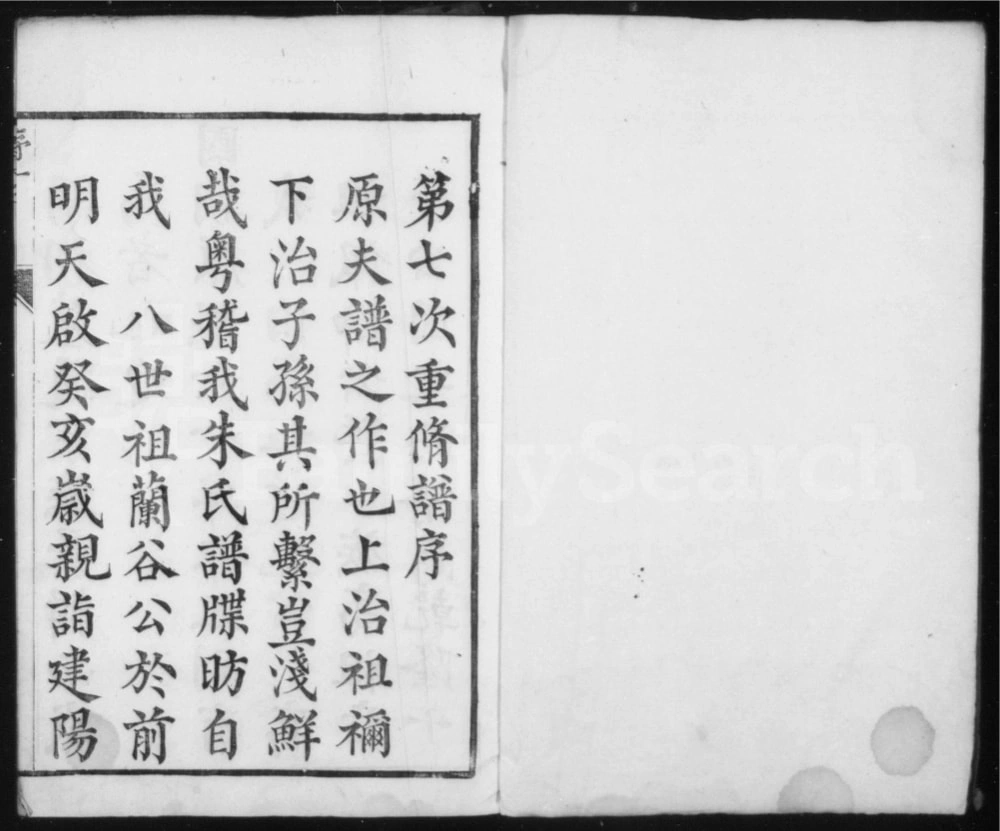 第七次重脩譜序
原夫譜之作也上治祖禰
下治子孫其所繫豈淺鮮
哉粵稽我朱氏譜牒昉自
我八世祖蘭谷公於前
明天啟癸亥歲親詣建陽
FamilySearch